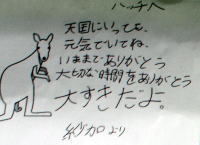 ハッチへ
天国にいっても、
元気でいてね。
いままでありがとう
大切な時間をありがとう
大すきだよ。
紗加より